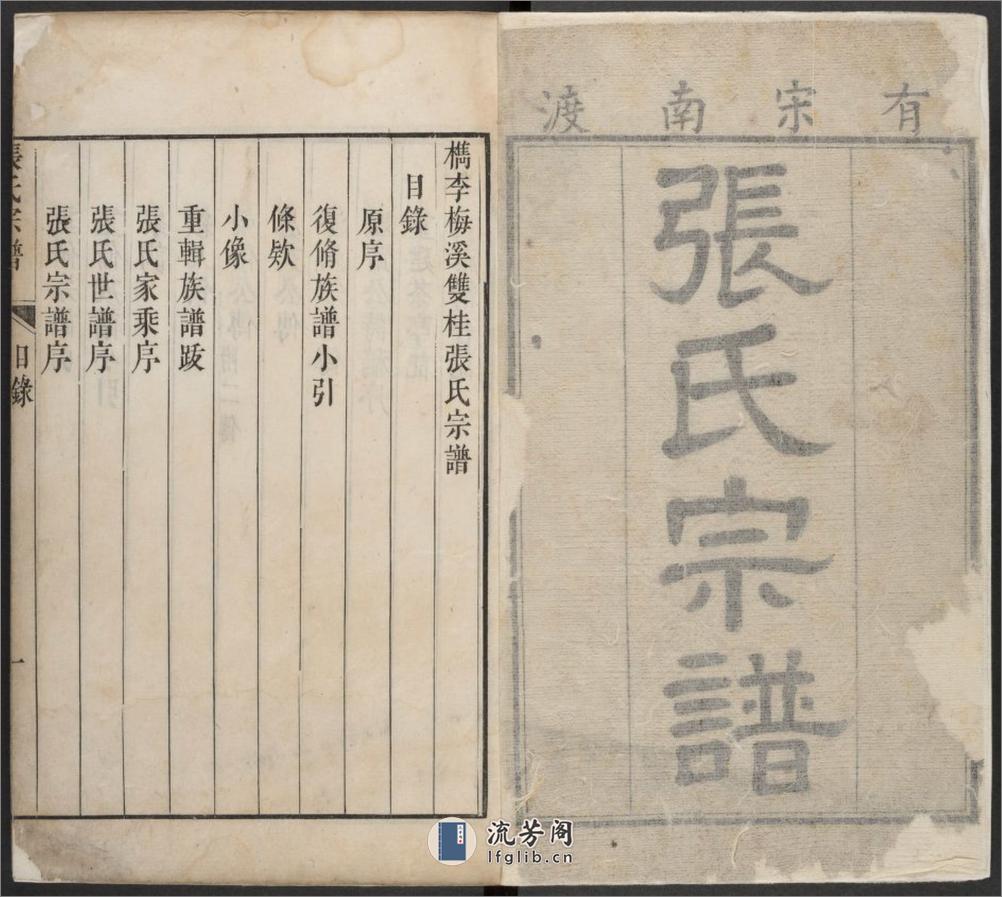 有宋南渡
張氏宗譜
檇李梅溪雙桂張氏宗譜
目錄
原序
復脩族譜小引
條欵
小像
重輯族譜跋
張氏家乘序
張氏世譜序
張氏宗譜序
張氏宗譜
目錄
一
流芳阁
lfglib.cn